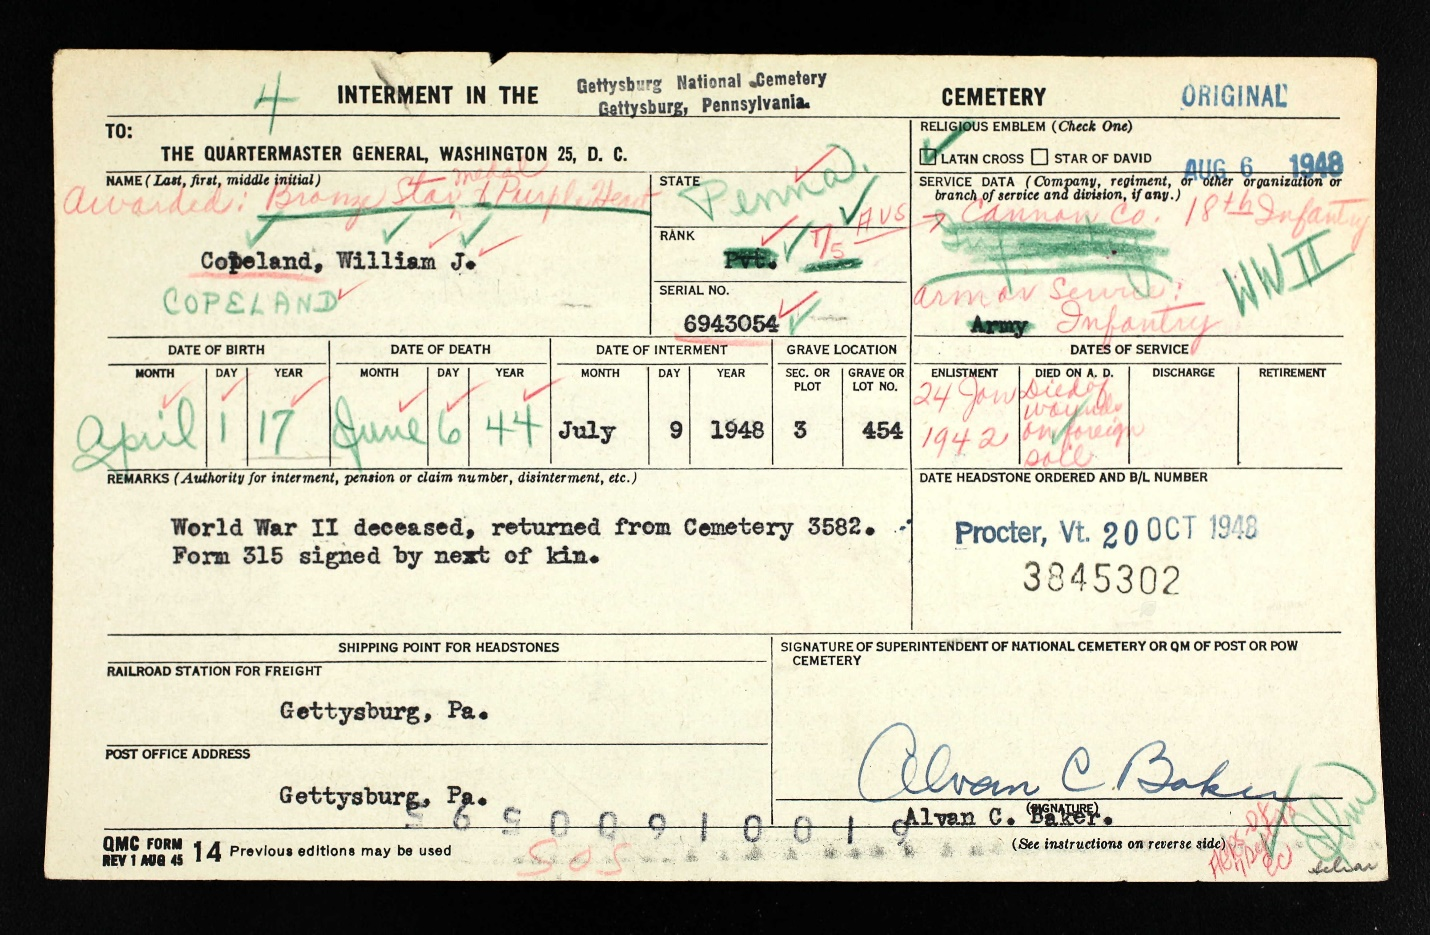 4 INTERMENT IN THE Gettysburg National Cemetery CEMETERY ORIGINAL
Gettysburg, Pennsylvania.
TO:
THE QUARTERMASTER GENERAL, WASHINGTON 25, D. C.
RELIGIOUS EMBLEM (Check One)
LATIN CROSS STAR OF DAVID
AUG 6 1948
NAME (Last, first, middle initial)
Awarded: Bronze Star Medal & Purple Heart
Copeland, William J.
COPELAND
STATE
Penna.
RANK
Pvt. T/5 AUS
SERIAL NO.
6943054
SERVICE DATA (Company, regiment, or other organization or
branch of service and division, if any.)
Cannon Co. 18th Infantry
WW II
Arm or Service:
Army Infantry
DATE OF BIRTH DATE OF DEATH DATE OF INTERMENT GRAVE LOCATION DATES OF SERVICE
MONTH DAY YEAR MONTH DAY YEAR MONTH DAY YEAR SEC. OR PLOT GRAVE OR LOT NO. ENLISTMENT DIED ON A. D. DISCHARGE RETIREMENT
April 1 17 June 6 44 July 9 1948 3 454
24 Jan
1942
Died of
wounds
on foreign
soil
REMARKS (Authority for interment, pension or claim number, disinterment, etc.)
World War II deceased, returned from Cemetery 3582.
Form 315 signed by next of kin.
DATE HEADSTONE ORDERED AND B/L NUMBER
Procter, Vt. 20 OCT 1948
3845302
SHIPPING POINT FOR HEADSTONES
RAILROAD STATION FOR FREIGHT
Gettysburg, Pa.
POST OFFICE ADDRESS
Gettysburg, Pa.
SIGNATURE OF SUPERINTENDENT OF NATIONAL CEMETERY OR QM OF POST OR POW
CEMETERY
Alvan C. Baker
(SIGNATURE)
Alvan C. Baker.
QMC FORM
REV 1 AUG 45 14 Previous editions may be used
505
(See instructions on reverse side)